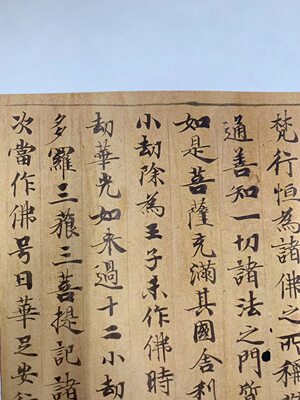 梵行恒為諸佛之所稱
通善知一切諸法之門
如是菩薩充滿其國舍利
小劫除為王子未作佛時
劫華光如来過十二小劫
多羅三藐三菩提記諸
次當作佛号曰華足安行